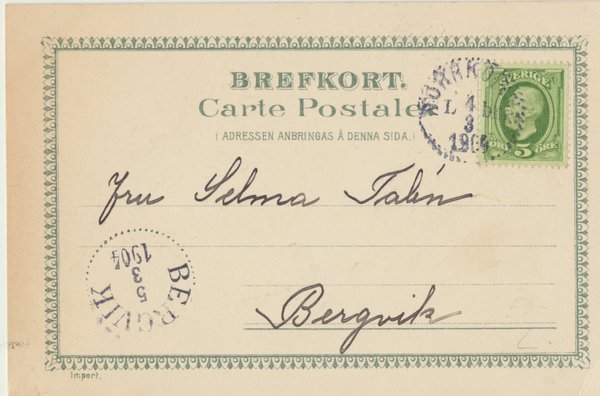 BREFKORT.
Carte Postale
(ADRESSEN ANBRINGAS Å DENNA SIDA.)
SVERIGE
5
ÖRE
4
3
1904
Fru Selma Talén
BERGVIK
5
3
1904
Bergvik
Import.